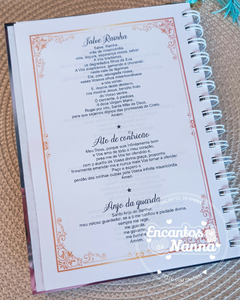 Salve Rainha
Salve, Rainha
mãe de misericórdia,
vida, doçura, esperança nossa, salve!
A Vós bradamos,
os degredados filhos de Eva.
A Vós suspiramos, gemendo e chorando
neste vale de lágrimas.
Eia, pois, advogada nossa,
esses Vossos olhos misericordiosos
a nós volvei.
E, depois deste desterro,
nos mostrai Jesus, bendito fruto
do Vosso ventre.
Ó clemente, ó piedosa,
ó doce Virgem Maria.
Rogai por nós, Santa Mãe de Deus,
para que sejamos dignos das promessas de Cristo.
Amém.
Ato de contrição
Meu Deus, porque sois infinitamente bom
e Vos amo de todo o meu coração,
pesa-me de Vos ter ofendido e,
com o auxílio da Vossa divina graça, proponho
firmemente emendar-me e nunca mais Vos tornar a ofender.
Peço e espero o
perdão das minhas culpas pela Vossa infinita misericórdia.
Amém.
Anjo da guarda
Santo Anjo do Senhor,
meu zeloso guardador, se a ti me confiou a piedade divina,
sempre me rege,
me guarde,
me governe,
Amém.
Encantos
da
Nanna